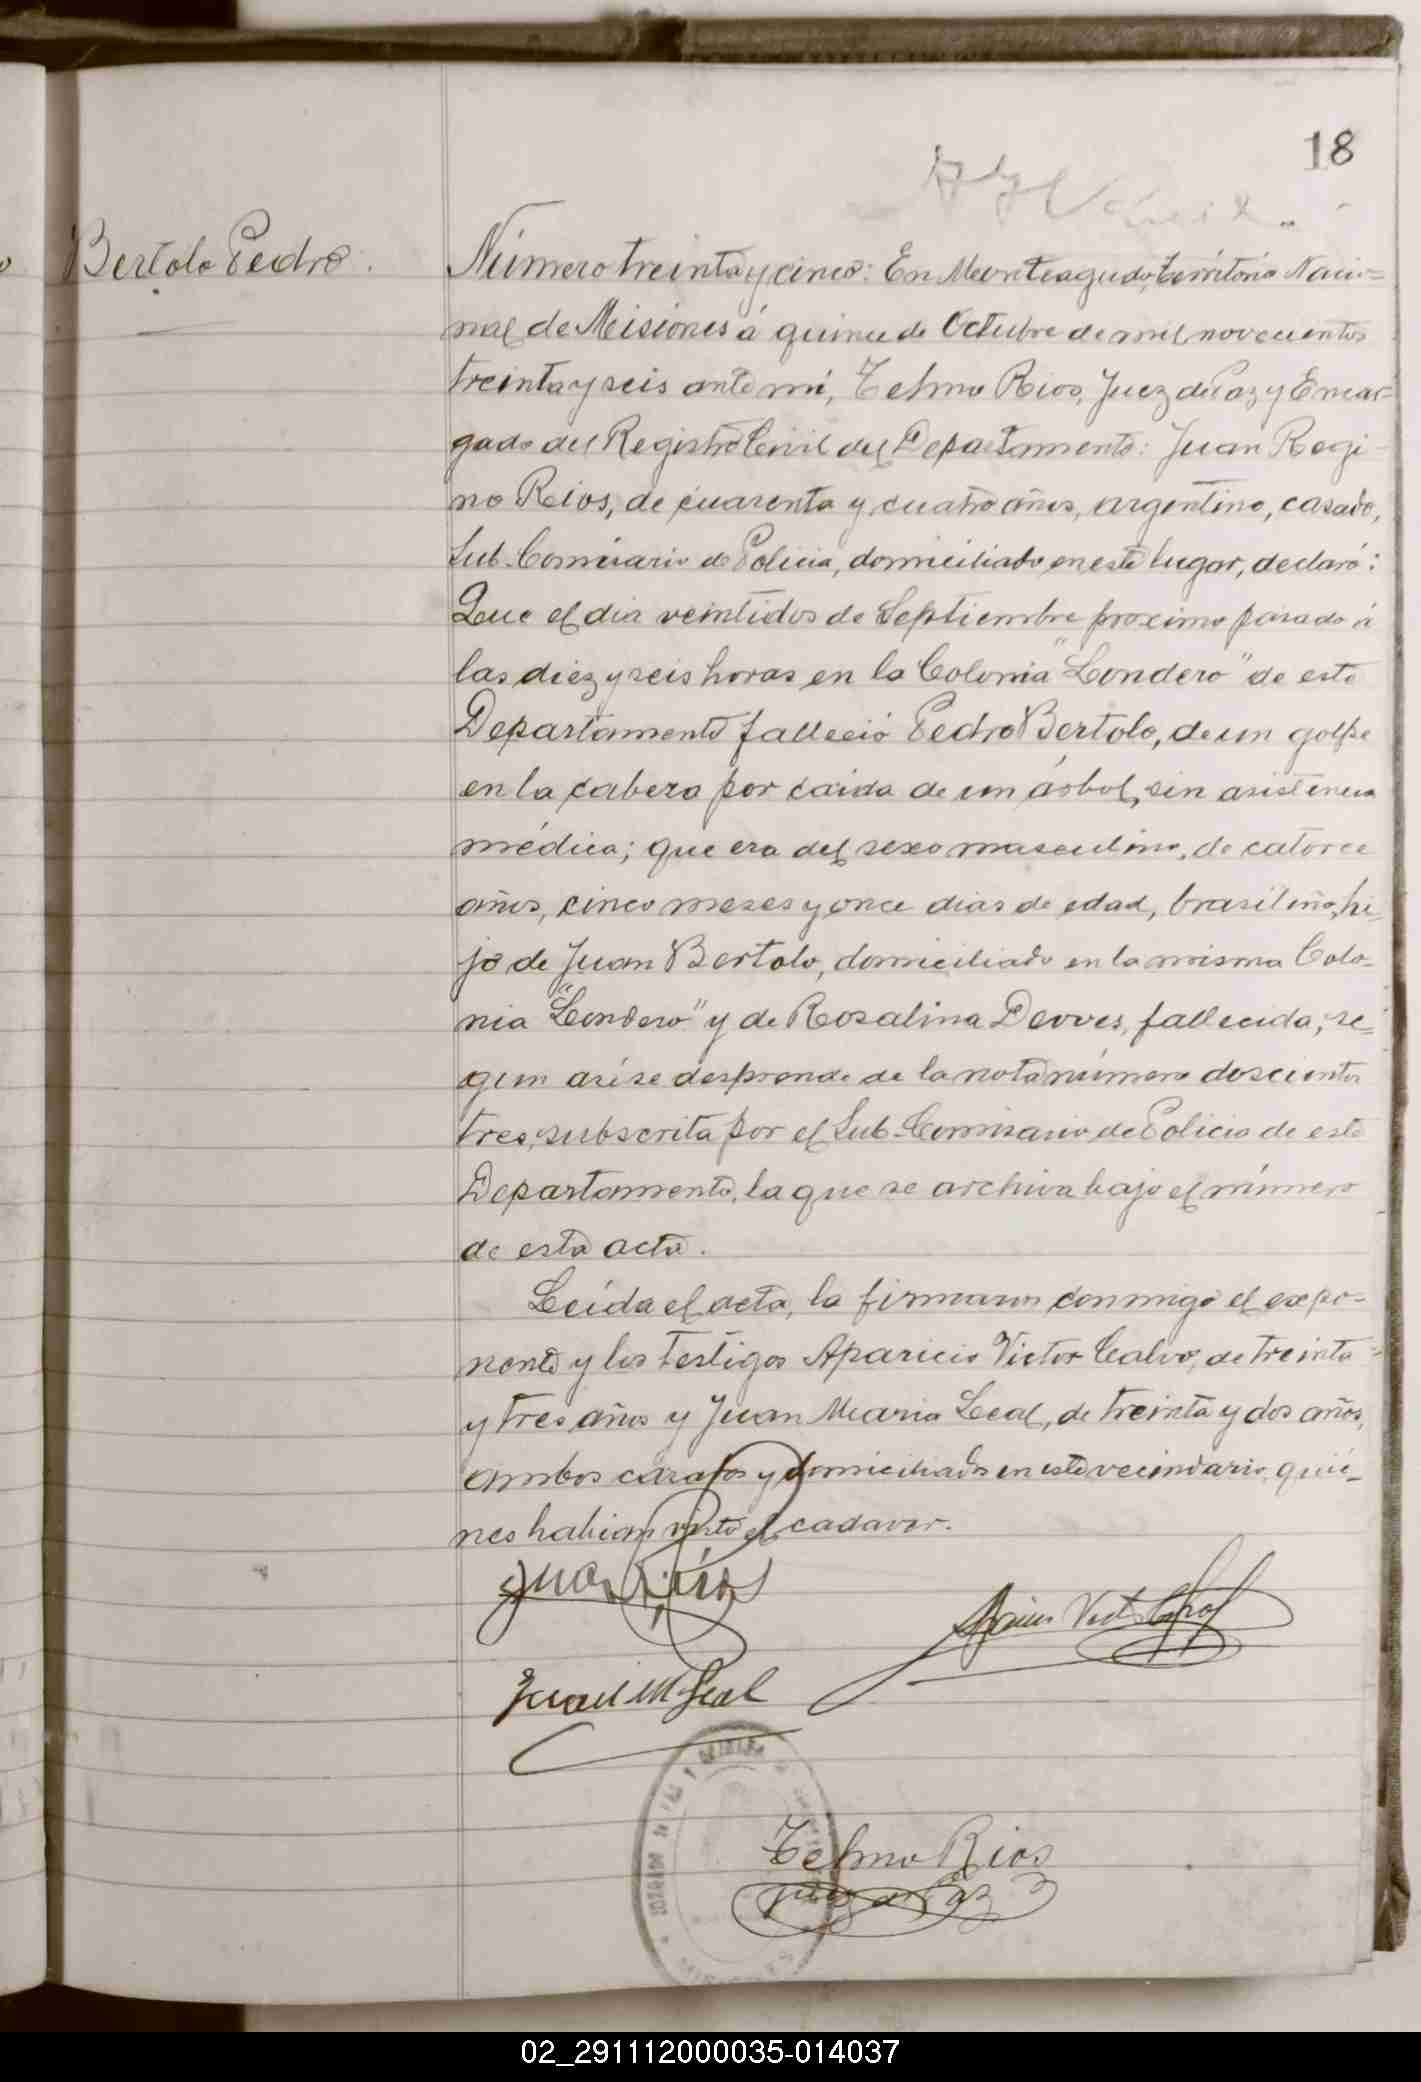 18
Bertolo Pedro.
Número treinta y cinco: En Monteagudo, territorio Nacio=
nal de Misiones á quince de Octubre de mil novecientos
treinta y seis ante mí, Telmo Rios, Juez de Paz y Encar=
gado del Registro Civil del Departamento: Juan Regi-
no Rios, de cuarenta y cuatro años, argentino, casado,
Sub-Comisario de Policia, domiciliado en este lugar, declaró:
Que el dia veintidos de Septiembre proximo pasado á
las diez y seis horas en la Colonia "Londero" de este
Departamento falleció Pedro Bertolo, de un golpe
en la cabeza por caida de un árbol, sin asistencia
médica; que era del sexo masculino, de catorce
años, cinco meses y once dias de edad, brasileño, hi-
jo de Juan Bertolo, domiciliado en la misma Colo-
nia "Londero" y de Rosalina Devves, fallecida; se=
gun asi se desprende de la nota número doscientos
tres, subscrita por el Sub-Comisario de Policia de este
Departamento, la que se archiva bajo el número
de esta acta.
Leída el acta, la firmaron conmigo el expo=
nente y los testigos Aparicio Victor Calvo, de treinta
y tres años y Juan Maria Leal, de treinta y dos años,
ambos casados y domiciliados en este vecindario, quié-
nes habian visto el cadaver.
Juan Rios
Juan M Leal
Telmo Rios
Juez de Paz
02_291112000035-014037